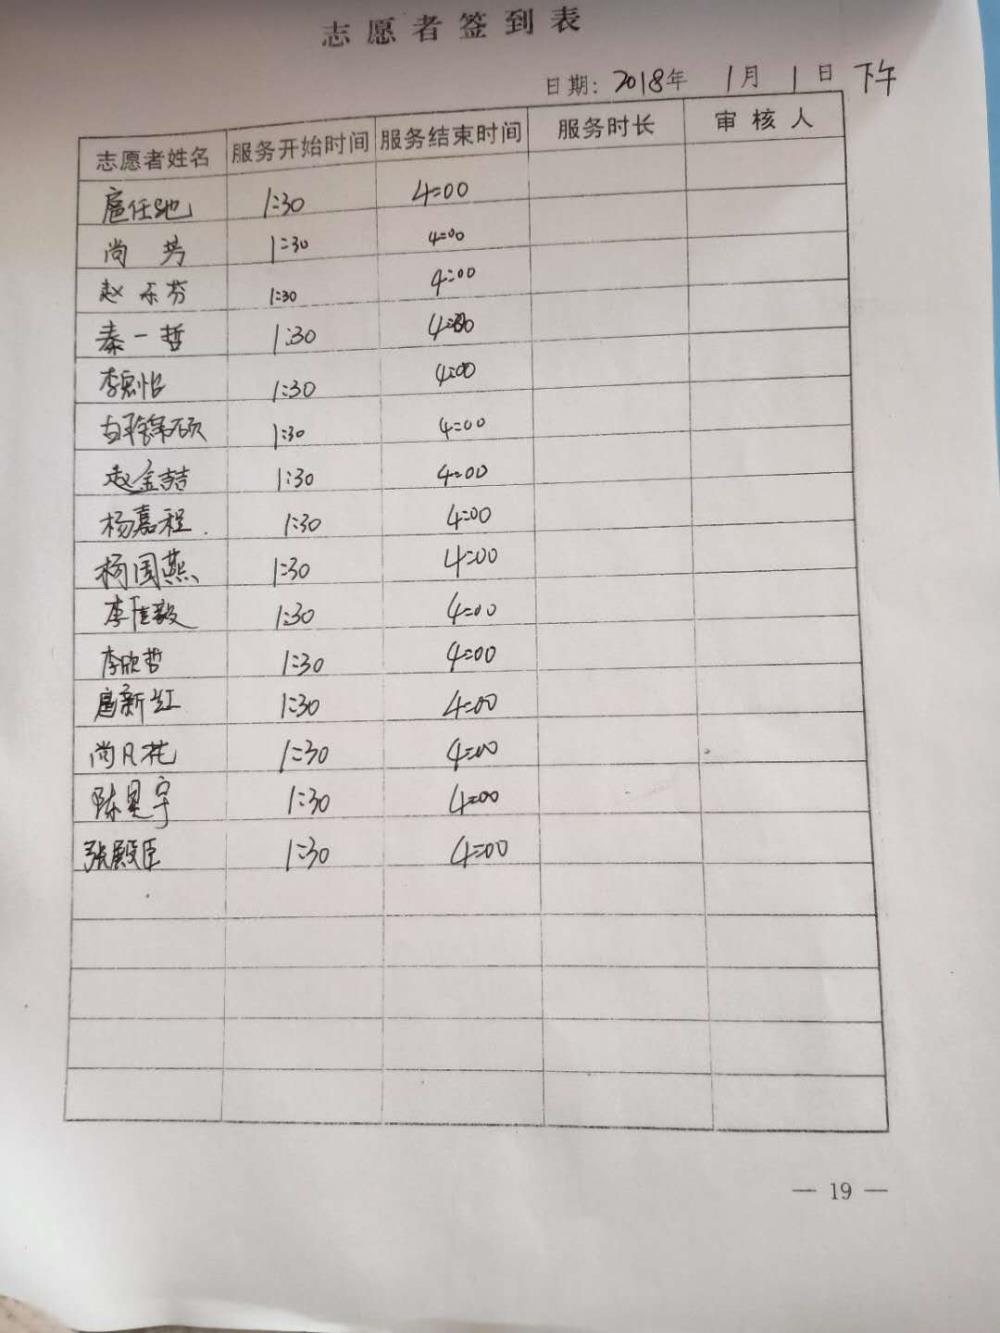 志愿者签到表
日期: 2018年 1月 1日 下午
志愿者姓名 服务开始时间 服务结束时间 服务时长 审核人
1:30 4:00
尚芳 1:30 4:00
赵乐芬 1:30 4:00
秦一哲 1:30 4:00
1:30 4:00
1:30 4:00
赵金喆 1:30 4:00
杨嘉程 1:30 4:00
杨国燕 1:30 4:00
李佳毅 1:30 4:00
李欣哲 1:30 4:00
扈新红 1:30 4:00
尚凡花 1:30 4:00
陈昊宇 1:30 4:00
张殿臣 1:30 4:00
— 19 —